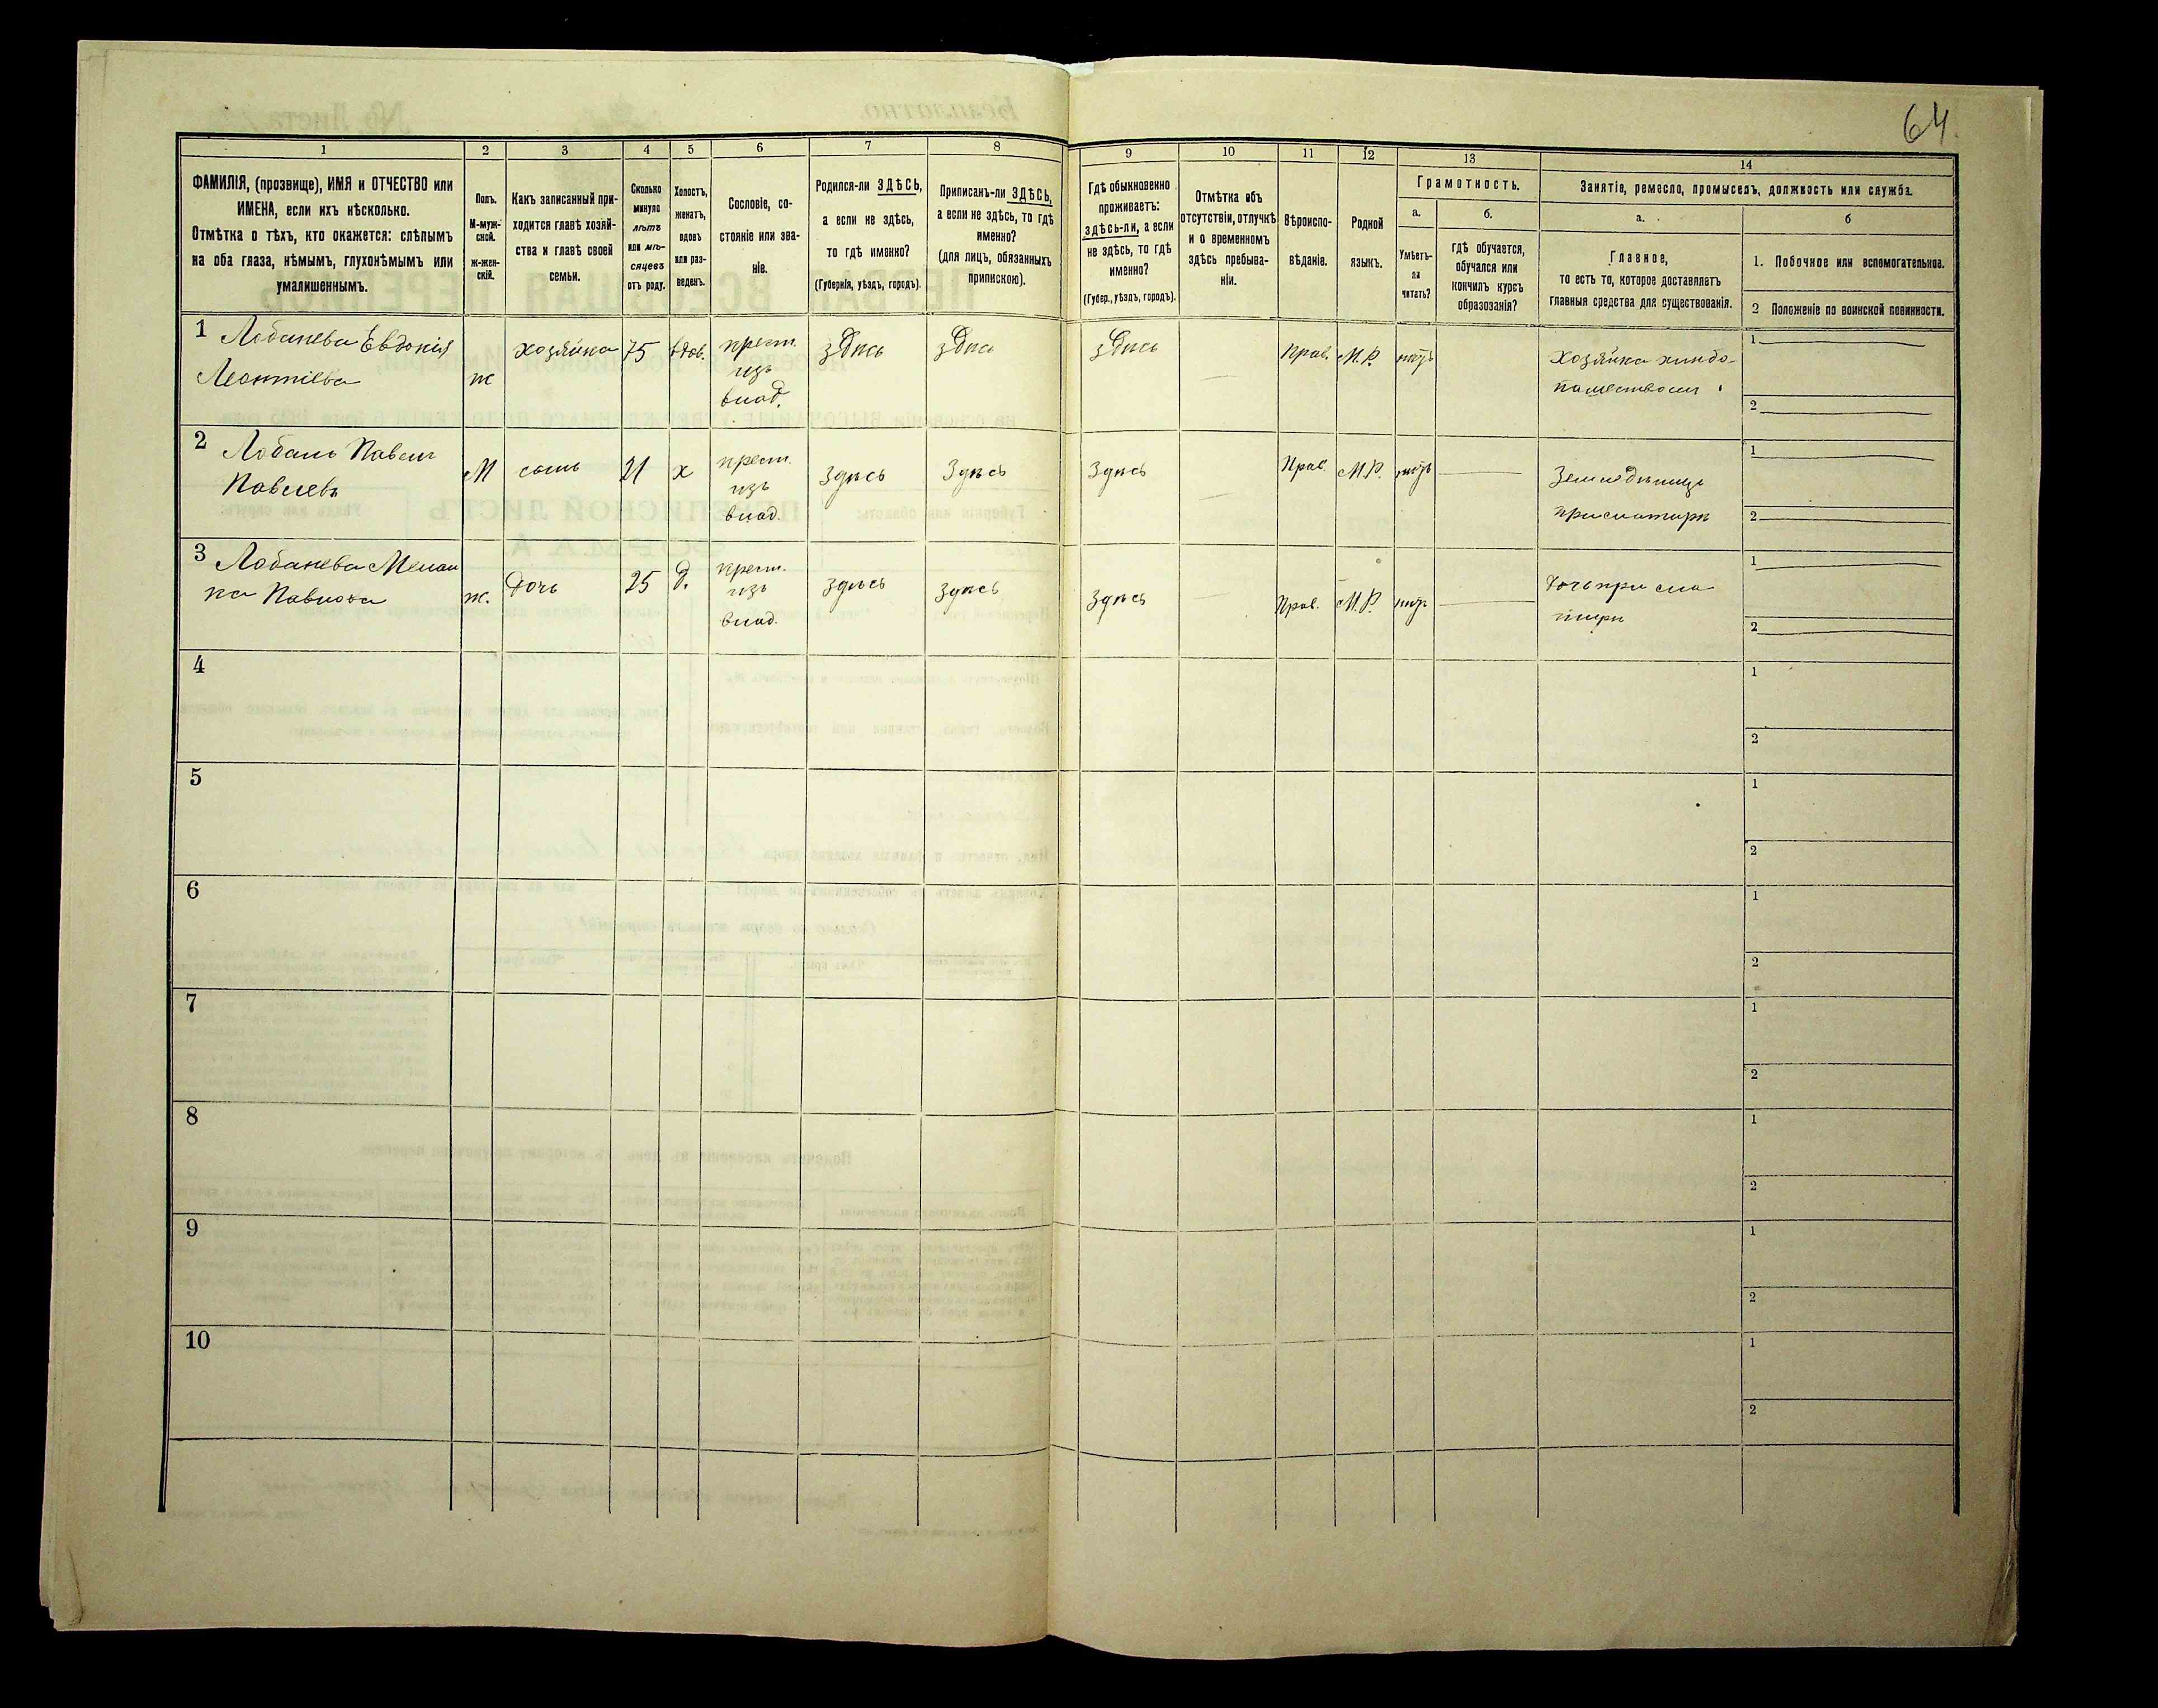 64
1 2 3 4 5 6 7 8 9 10 11 12 13 14
ФАМИЛІЯ, (прозвище), ИМЯ и ОТЧЕСТВО или
ИМЕНА, если ихъ нѣсколько.
Отмѣтка о тѣхъ, кто окажется: слѣпымъ
на оба глаза, нѣмымъ, глухонѣмымъ или
умалишеннымъ.
Полъ.
М-муж-
ской.
ж-жен-
скій.
Какъ записанный при-
ходится главѣ хозяй-
ства и главѣ своей
семьи.
Сколько
минуло
лѣтъ
или мѣ-
сяцевъ
отъ роду.
Холостъ,
женатъ,
вдовъ
или раз-
веденъ.
Сословіе, со-
стояніе или зва-
ніе.
Родился-ли ЗДѢСЬ,
а если не здѣсь,
то гдѣ именно?
(Губернія, уѣздъ, городъ).
Приписанъ-ли ЗДѢСЬ,
а если не здѣсь, то гдѣ
именно?
(для лицъ, обязанныхъ
припискою).
Гдѣ обыкновенно
проживаетъ:
здѣсь-ли, а если
не здѣсь, то гдѣ
именно?
(Губер., уѣздъ, городъ).
Отмѣтка объ
отсутствіи, отлучкѣ
и о временномъ
здѣсь пребыва-
ніи.
Вѣроиспо-
вѣданіе.
Родной
языкъ.
Грамотность.
а. б.
Умѣетъ-
ли
читать?
гдѣ обучается,
обучался или
кончилъ курсъ
образозанія?
Занятіе, ремесло, промыселъ, должность или служба.
а. б
Главное,
то есть то, которое доставляетъ
главныя средства для существованія.
1. Побочное или вспомогательное.
2 Положеніе по воинской повинности.
1 Лобанева Евдокія
Леонтіева
ж
хозяйка 75 вдов.
крест.
изъ
влад.
здѣсь здѣсь здѣсь
Прав. М.Р. нѣтъ
Хозяйка
1
2
2 Лобань Павелъ
Павлевъ
М сынъ 21 х
крест.
изъ
влад.
Здѣсь Здѣсь Здѣсь
Прав. М.Р. нѣтъ
Земледѣлецъ
при матери
1
2
3 Лобанева Мелан
ка Павлова
ж. Дочь 25 д.
крест.
изъ
влад.
здѣсь здѣсь здѣсь
Прав. М.Р. нѣтъ
дочь при ма
тери
1
2
4
1
2
5
1
2
6
1
2
7
1
2
8
1
2
9
1
2
10
1
2